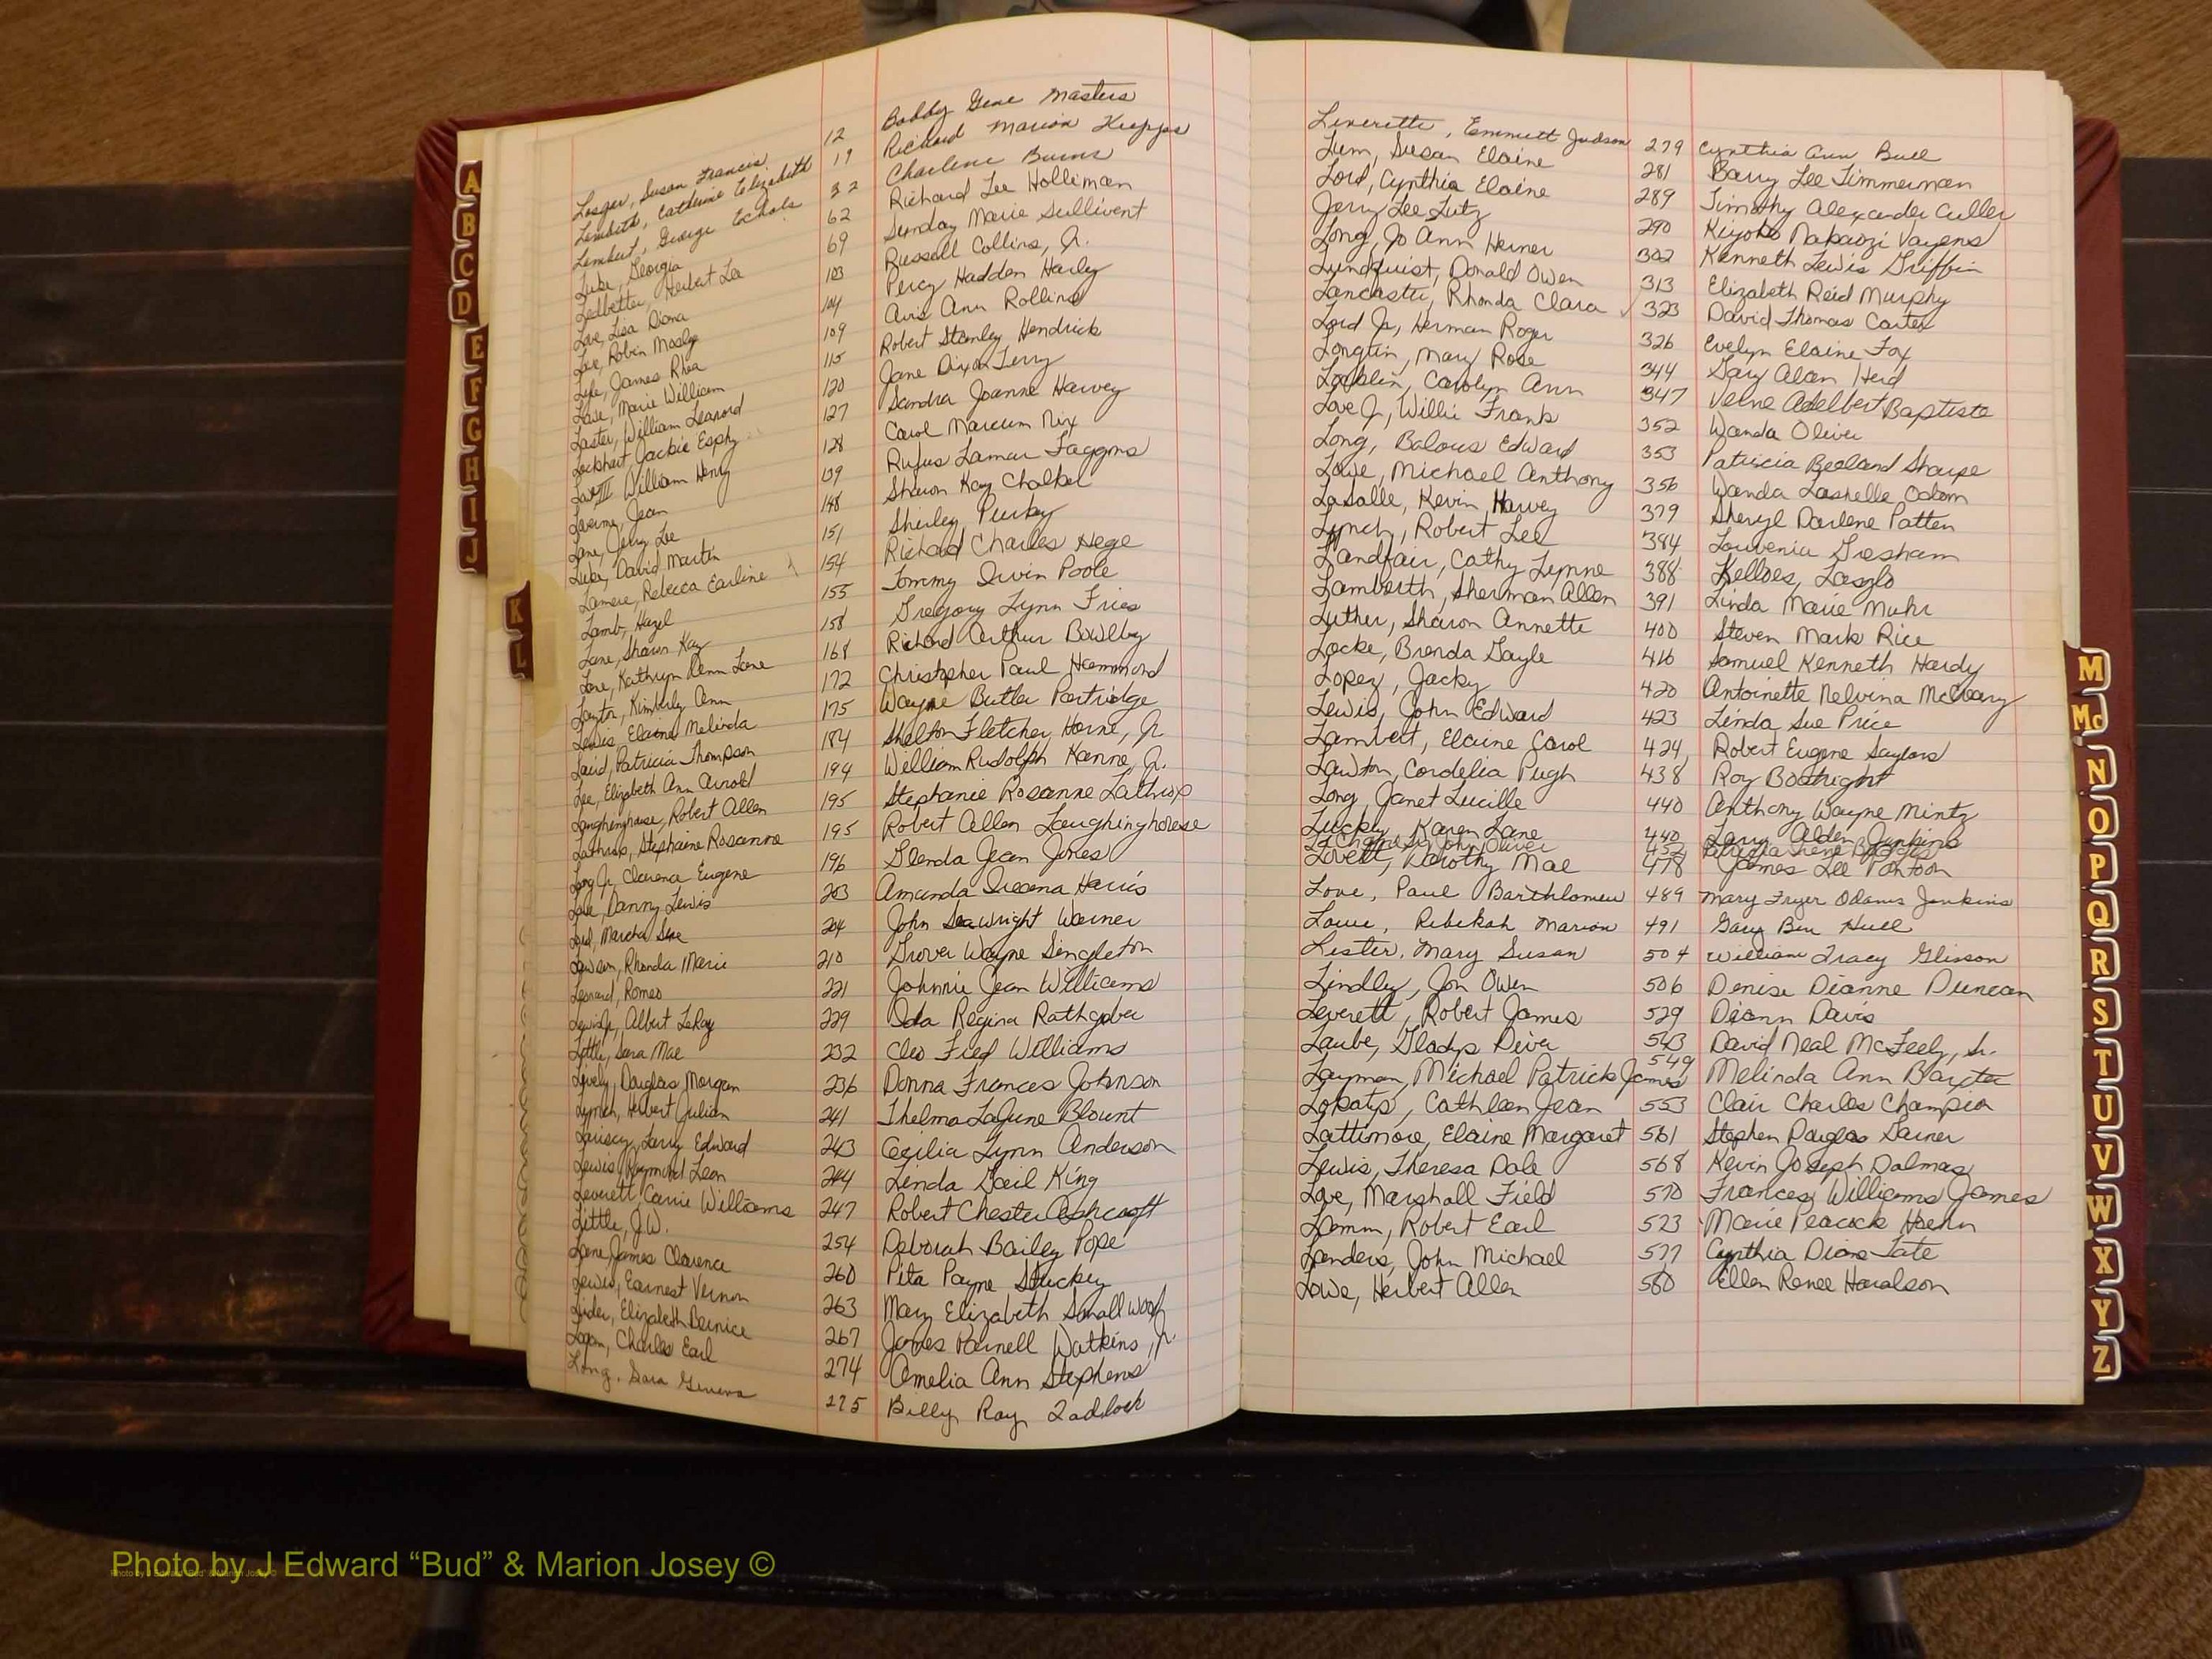 A
B
C
D
E
F
G
H
I
J
K
L
Susan Francis 12 Bobby Gene Masters
Lambeth, Catherine Elizabeth 19 Richard Marion
Lambert, George Echols 32 Charlene Burns
Luke, Georgia 62 Richard Lee Holliman
Ledbetter, Herbert Lee 69 Sunday Marie Sullivent
Love, Lisa Diana 103 Russell Collins, Jr.
Lee, Robin Mosley 104 Percy Hadden Harley
Lyle, James Rhea 109 Avis Ann Rollins
Lowe, Marie William 115 Robert Stanley Hendrick
Laster, William Leanord 120 Jane Dixon Terry
Lockhart, Jackie Esphy 127 Sandra Joanne Harvey
Law III William Henry 128 Carol Marcum Nix
Jean 139 Rufus Lamar Faggins
Lane, Jerry Lee 148 Sharon Kay Cholkel
Luke, David Martin 151 Shirley Purky
Lamere, Rebecca Earline 154 Richard Charles Hege
Lamb, Hazel 155 Tommy Irvin Poole
Lane, Sharon Kay 158 Gregory Lynn Fries
Lane, Kathryn Denn Lane 168 Richard Arthur Bowlby
Layton, Kimberly Ann 172 Christopher Paul Hammond
Lewis, Elaine Melinda 175 Wayne Butler Partridge
Laird, Patricia Thompson 184 Shelton Fletcher Horne, Jr.
Lee, Elizabeth Ann Arnold 194 William Rudolph Kanne, Jr.
Laughinghouse, Robert Allen 195 Stephanie Rosanne Lathrop
Lathrop, Stephaine Rosanne 195 Robert Allen Laughinghouse
Long Jr, Clarence Eugene 196 Glenda Jean Jones
Love, Danny Lewis 203 Amanda Harris
Lord, Martha Sue 204 John Seawright Warner
Lawson, Rhonda Marie 210 Grover Wayne Singleton
Leonard, Romeo 221 Johnnie Jean Williams
Lewis Jr, Albert LeRoy 229 Ida Regina Rathgeber
Little, Sara Mae 232 Cleo Fred Williams
Lively, Douglas Morgan 236 Donna Frances Johnson
Lynch, Herbert Julian 241 Thelma LaJune Blount
Lariscy, Larry Edward 243 Cecilia Lynn Anderson
Lewis, Raymond Leon 244 Linda Gail King
Leverett, Carrie Williams 247 Robert Chester Ashcraft
Little, J.W. 254 Deborah Bailey Pope
Lane, James Clarence 260 Pita Payne Stuckey
Lewis, Earnest Vernon 263 Mary Elizabeth Smallwood
Lider, Elizabeth Bernice 267 James Parnell Watkins, Jr
Logan, Charles Earl 274 Amelia Ann Stephens
Long, Sara Geneva 275 Billy Ray Zadlock
Leverette, Emmett Judson 279 Cynthia Ann Bull
Lum, Susan Elaine 281 Barry Lee Timmerman
Lord, Cynthia Elaine 289 Timothy Alexander Culler
Jerry Lee Lutz 290 Kiyoko Nakaozi Vayens
Long, Jo Ann Herner 302 Kenneth Lewis Griffin
Lundquist, Donald Owen 313 Elizabeth Reid Murphy
Lancaster, Rhonda Clara ✓ 323 David Thomas Carter
Lord Jr, Herman Roger 326 Evelyn Elaine Fox
Longtin, Mary Rose 344 Gary Alan Heid
Carolyn Ann 347 Verne Adelbert Baptiste
Love Jr, Willie Frank 352 Wanda Oliver
Long, Balous Edward 353 Patricia Beeland Sharpe
Lowe, Michael Anthony 356 Wanda Lashelle Odom
LaSalle, Kevin Harvey 379 Sheryl Darlene Patten
Lynch, Robert Lee 384 Louvenia Gresham
Landfair, Cathy Lynne 388 Kelloes, Laszlo
Lamberth, Sherman Allen 391 Linda Marie Muhr
Luther, Sharon Annette 400 Steven Mark Rice
Locke, Brenda Gayle 416 Samuel Kenneth Hardy
Lopez, Jacky 420 Antoinette Nelvina McCleary
Lewis, John Edward 423 Linda Sue Price
Lambert, Elaine Carol 424 Robert Eugene Saylors
Lawton, Cordelia Pugh 438 Roy Boatright
Long, Janet Lucille 440 Anthony Wayne Mintz
Lucky, Karen Lane 440 Larry Alden Junkins
John Oliver 452 Patricia Irene
Lovett, Dorothy Mae 478 James Lee Pontoon
Love, Paul Barthlomew 489 Mary Fryer Odams Jenkins
Lowe, Rebekah Marion 491 Gary Ben Hull
Lester, Mary Susan 504 William Tracy Glisson
Lindley, Jon Owen 506 Denise Dianne Duncan
Leverett, Robert James 529 Diann Davis
Laube, Gladys Diver 543 David Neal McFeely, Sr.
Layman, Michael Patrick James 549 Melinda Ann Baxter
Lopatyp, Cathleen Jean 553 Clair Charles Champion
Lattimore, Elaine Margaret 561 Stephen Douglas Garner
Lewis, Theresa Dale 568 Kevin Joseph Dalmas
Love, Marshall Field 570 Frances Williams James
Lamm, Robert Earl 573 Marie Peacock Hoehn
Landers, John Michael 577 Cynthia Diane Tate
Lowe, Herbert Allen 580 Ellen Renee Haralson
M
Mc
N
O
P
Q
R
S
T
U
V
W
X
Y
Z
Photo by J Edward “Bud” & Marion Josey ©
Photo by J Edward “Bud” & Marion Josey ©